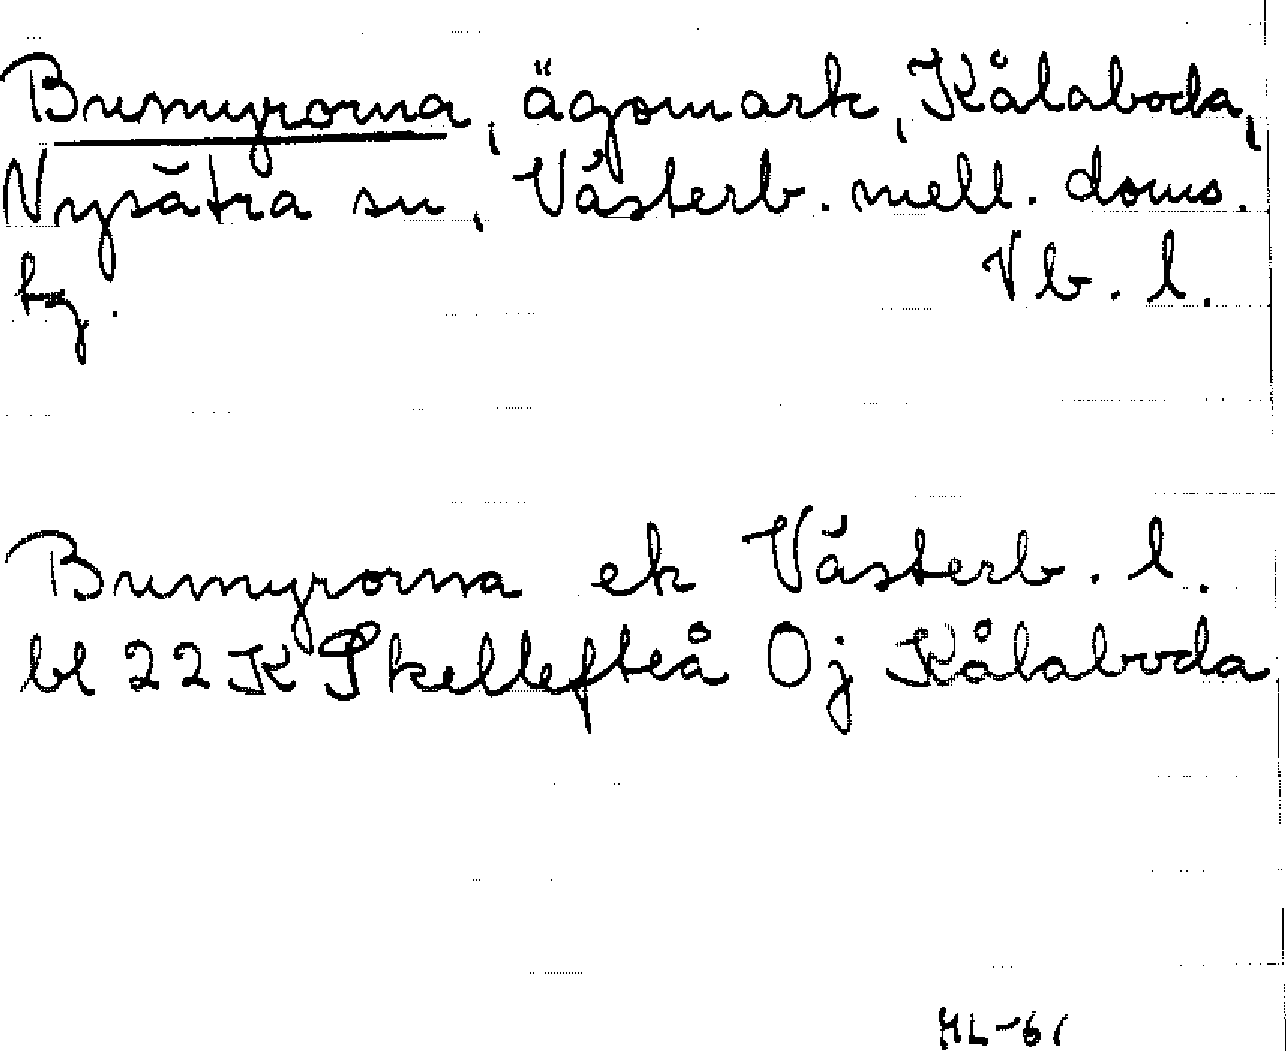 Bumyrorna, ägomark, Kålaboda,
Nysätra sn, Västerb. mell. doms.
tg. Vb. l.
Bumyrorna ek Västerb. l.
bl 22K Skellefteå 0j Kålaboda
HL-61